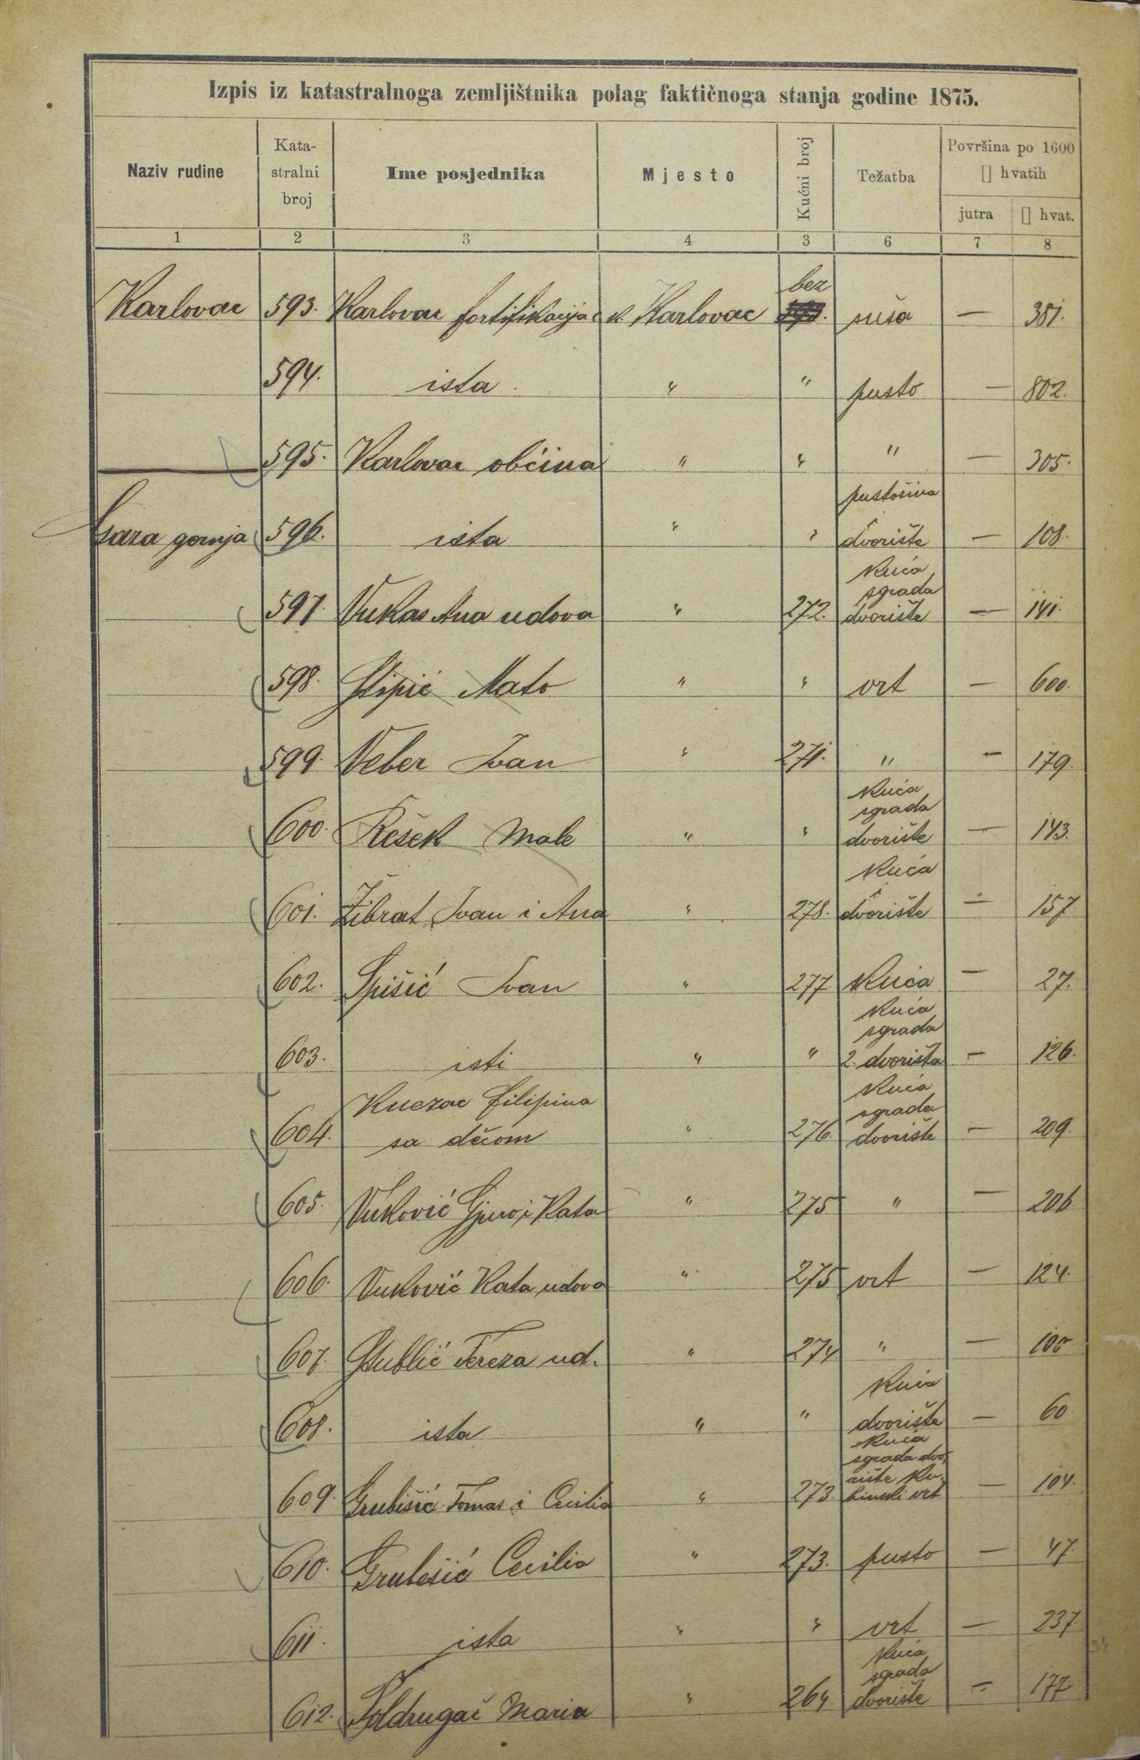 Izpis iz katastralnoga zemljištnika polag faktičnoga stanja godine 1875.
Naziv rudine Kata- stralni broj Ime posjednika Mjesto Kućni broj Težatba Površina po 1600 [] hvatih
jutra [] hvat.
1 2 3 4 3 6 7 8
bez
Karlovac 593. Karlovac fortifikacija c. k. Karlovac suša — 381.
594. ista " " pusto — 802.
595. Karlovac občina " " " — 305.
pustošina
Gaza gornja 596. ista " " dvorište — 108.
kuća
sgrada
597. Vukas Ana udova " 272. dvorište — 141.
598. Stipić Mato " " vrt — 600.
599. Veber Ivan " 271. " — 179.
kuća
sgrada
600. Rešek Mate " " dvorište — 143.
kuća
601. Žibrat Ivan i Ana " 278. dvorište — 157
602. Spišić Ivan " 277 kuća — 27.
kuća
sgrada
603. isti " " 2 dvorišta — 126.
kuća
sgrada
604. Knezac Filipina sa děcom " 276 dvorište — 209.
605. Vuković Gjuro i Kata " 275 " — 206
606. Vuković Kata udova " 275 vrt — 124.
607. Tereza ud. " 274 " — 100
kuća
608. ista " " dvorište — 60
kuća
sgrada dvo-
rište ku-
609. Grubišić Tomas i Cecilia " 273 hinski vrt — 104.
610. Grubešić Cecilia " 273. pusto — 47
611. ista " " vrt — 237
kuća
sgrada
612. Poldrugač Maria " 264. dvorište — 177